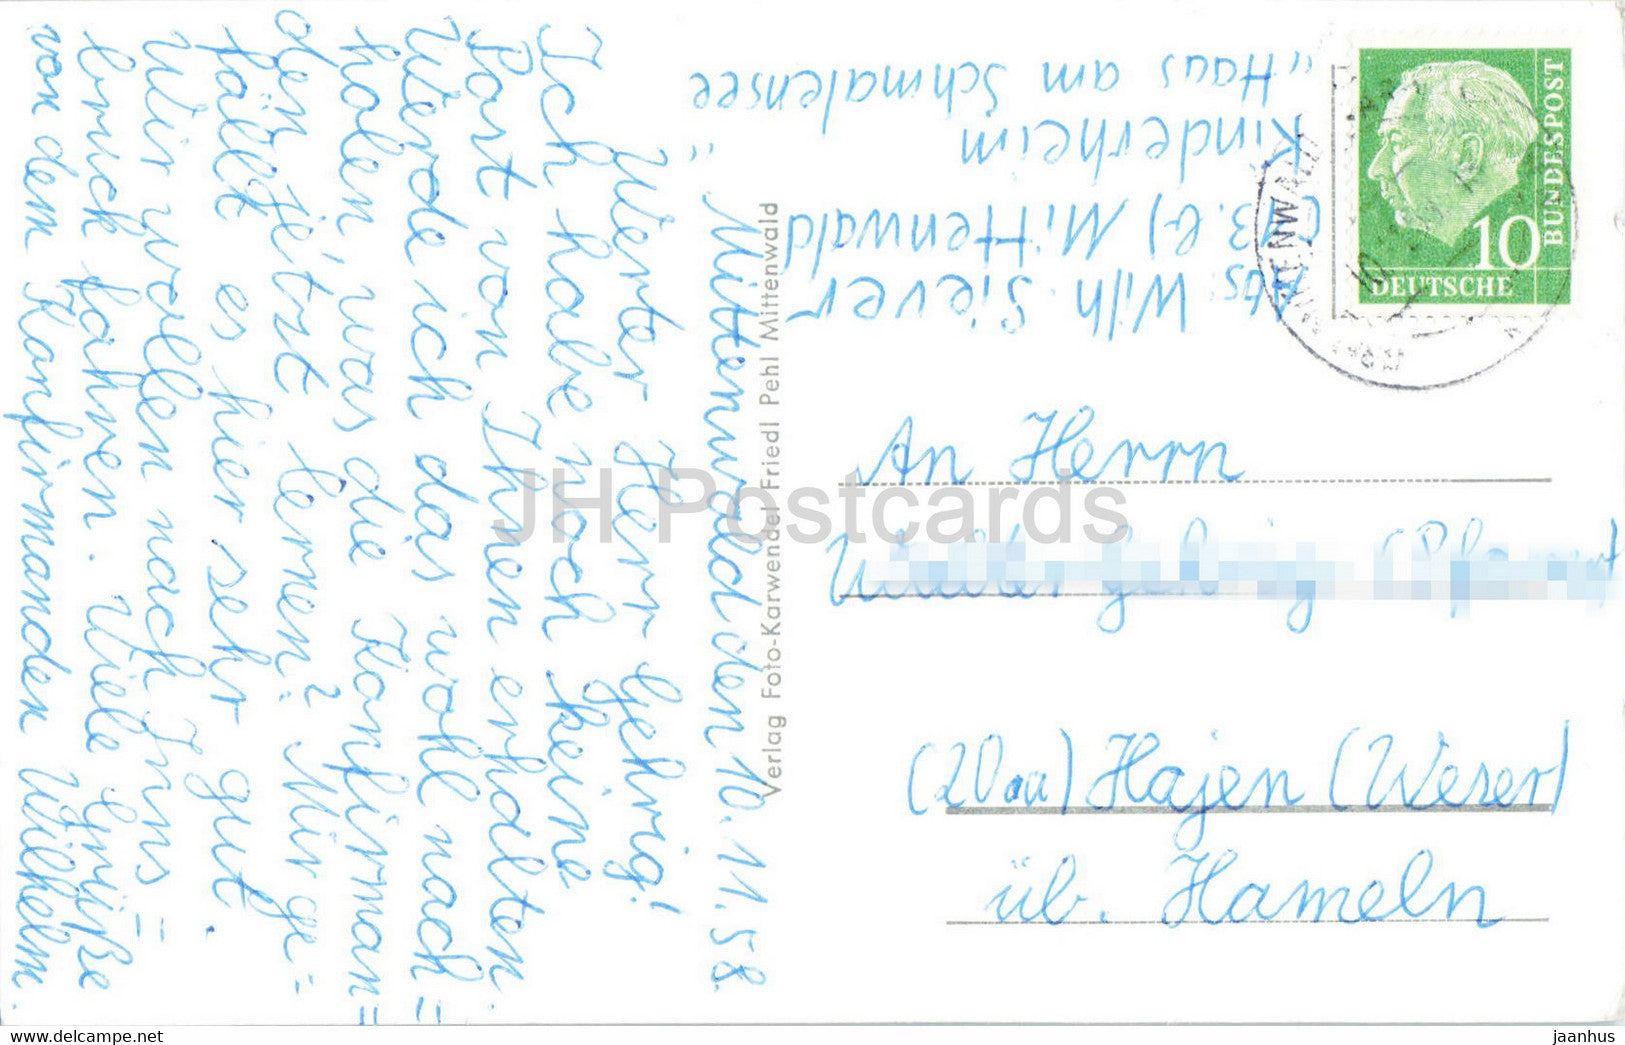 Mittenwald den 10.11.58.
Werter Herr Gehrig!
Ich habe noch keine
Post von Ihnen erhalten.
Werde ich das wohl nach=
holen, was die Konfirman=
den jetzt lernen? Mir ge=
fällt es hier sehr gut.
Wir wollen nach Inns=
bruck fahren. Viele Grüße
von dem Konfirmanden Wilhelm.
Abs. Wilh. Siever
(13.b) Mittenwald
Kinderheim
„Haus am Schmalensee"
Verlag Foto-Karwendel Friedl Pehl Mittenwald
MITTENWALD
DEUTSCHE
BUNDESPOST
10
An Herrn
(20a) Hajen (Weser)
üb. Hameln
JH Postcards
www.delcampe.net
jaanhus